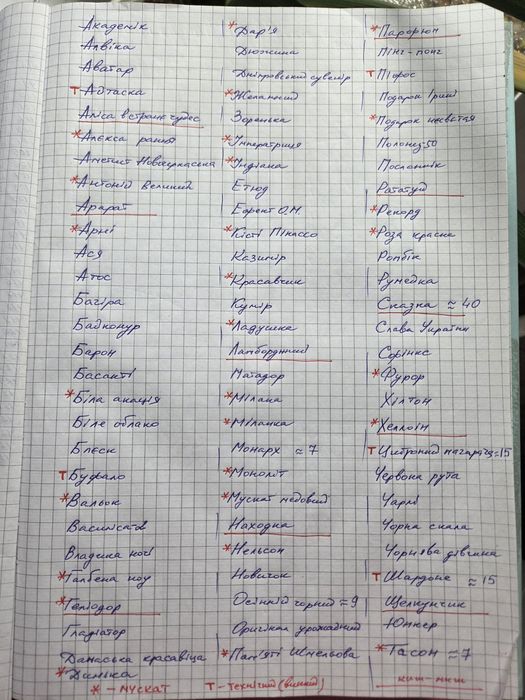 Академік
Алвіка
Аватар
Т Адтаска
Аліса в стране чудес
* Алекса рання
Аметист Новочеркаська
* Антоній великий
Арарат
* Арні
Ася
Атос
Багіра
Байконур
Барон
Басанті
* Біла акація
Біле облако
Блеск
Т Буфало
* Вальок
Василіса
Владика ночі
* Галбена ноу
* Геліодор
Гладіатор
Дамаська красавіца
* Диніка
* Дар'я
Дюжина
Дніпровський сувенір
* Желанний
Зоренька
* Імператриця
* Індіана
Етюд
Ефект О.М.
* Кісті Пікассо
Казимір
* Красавчик
Кумір
* Ладушка
Ламборджині
Матадор
* Мілана
* Міланка
Монарх ≈ 7
* Моноліт
* Мускат медовий
Находка
* Нельсон
Новичок
Осінній чорний ≈ 9
Оригінал урожайний
* Пам'яті Шмельова
* Парорюн
Пінг-понг
Т Піфос
Подарок Ірині
* Подарок несвєтая
Полонез-50
Посланнік
Рататуй
* Рекорд
* Роза красна
Ромбік
Румейка
Сказка ≈ 40
Слава Україні
Софінкс
* Фурор
Хілтон
* Хеллоін
Т Цитронний магарача ≈ 15
Червона рута
Чарлі
Чорна скала
Чорнява дівчина
Т Шардоне ≈ 15
Щелкунчик
Юпкер
* Тасон ≈ 7
киш-миш
* - мускат
Т - технічий (винний)